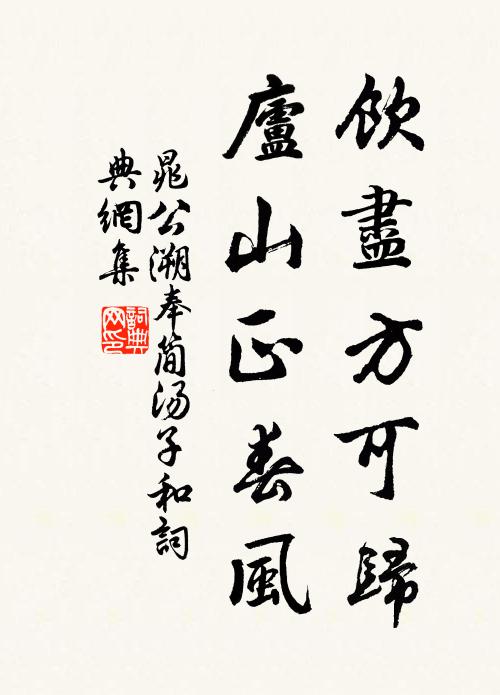 飲盡方可歸
廬山正春風
晁公溯奉简汤子和詞
典網集
詞典网印